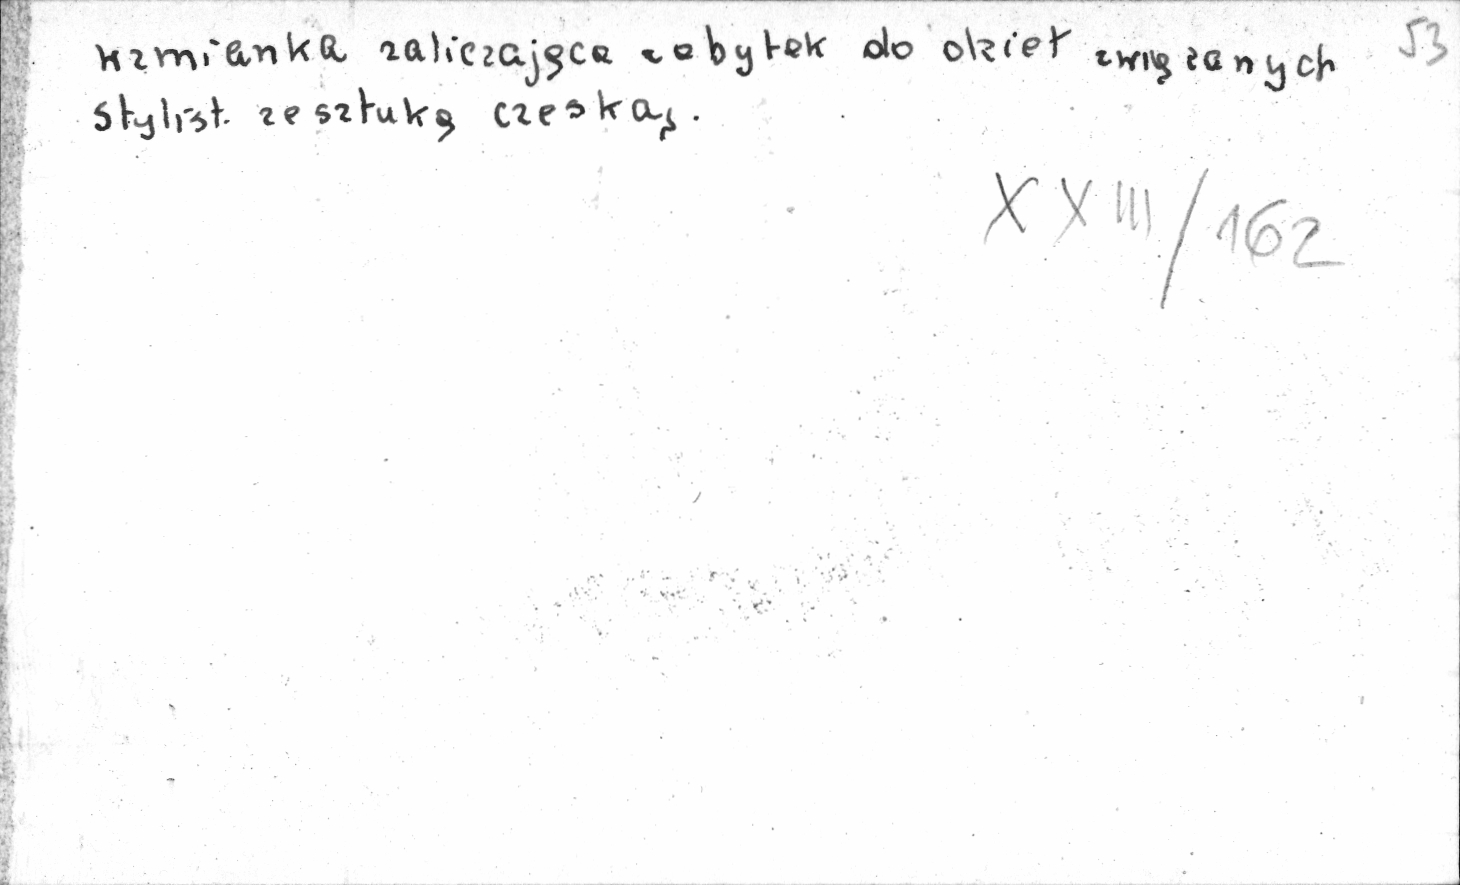 wzmianka zaliczająca zabytek do dzieł związanych 53
stylist. ze sztuką czeską.
XXIII/162